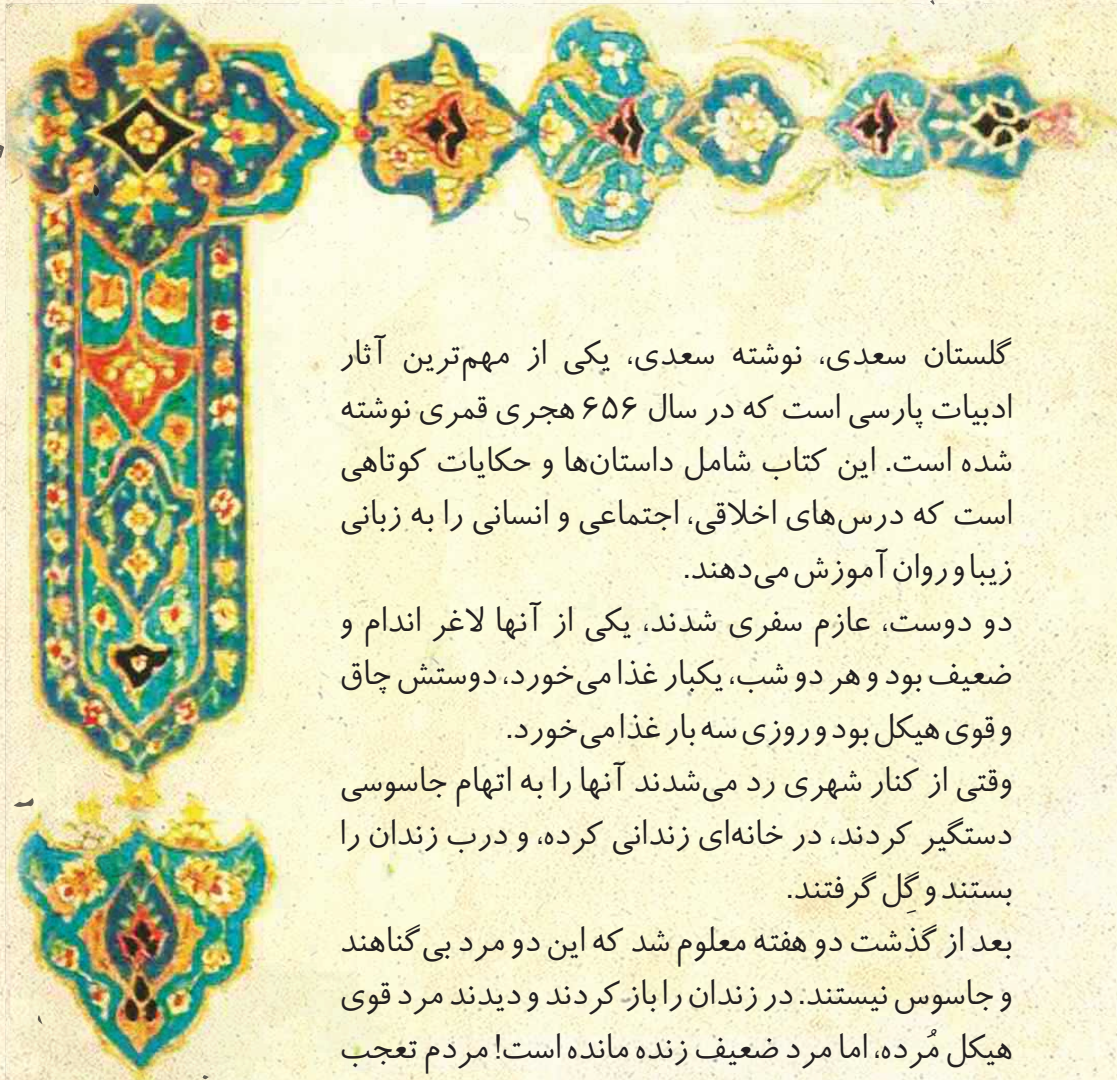 گلستان سعدی، نوشته سعدی، یکی از مهم‌ترین آثار
ادبیات پارسی است که در سال ۶۵۶ هجری قمری نوشته
شده است. این کتاب شامل داستان‌ها و حکایات کوتاهی
است که درس‌های اخلاقی، اجتماعی و انسانی را به زبانی
زیبا و روان آموزش می‌دهند.
دو دوست، عازم سفری شدند، یکی از آنها لاغر اندام و
ضعیف بود و هر دو شب، یکبار غذا می‌خورد، دوستش چاق
و قوی هیکل بود و روزی سه بار غذا می‌خورد.
وقتی از کنار شهری رد می‌شدند آنها را به اتهام جاسوسی
دستگیر کردند، در خانه‌ای زندانی کرده، و درب زندان را
بستند و گِل گرفتند.
بعد از گذشت دو هفته معلوم شد که این دو مرد بی گناهند
و جاسوس نیستند. در زندان را باز کردند و دیدند مرد قوی
هیکل مُرده، اما مرد ضعیف زنده مانده است! مردم تعجب